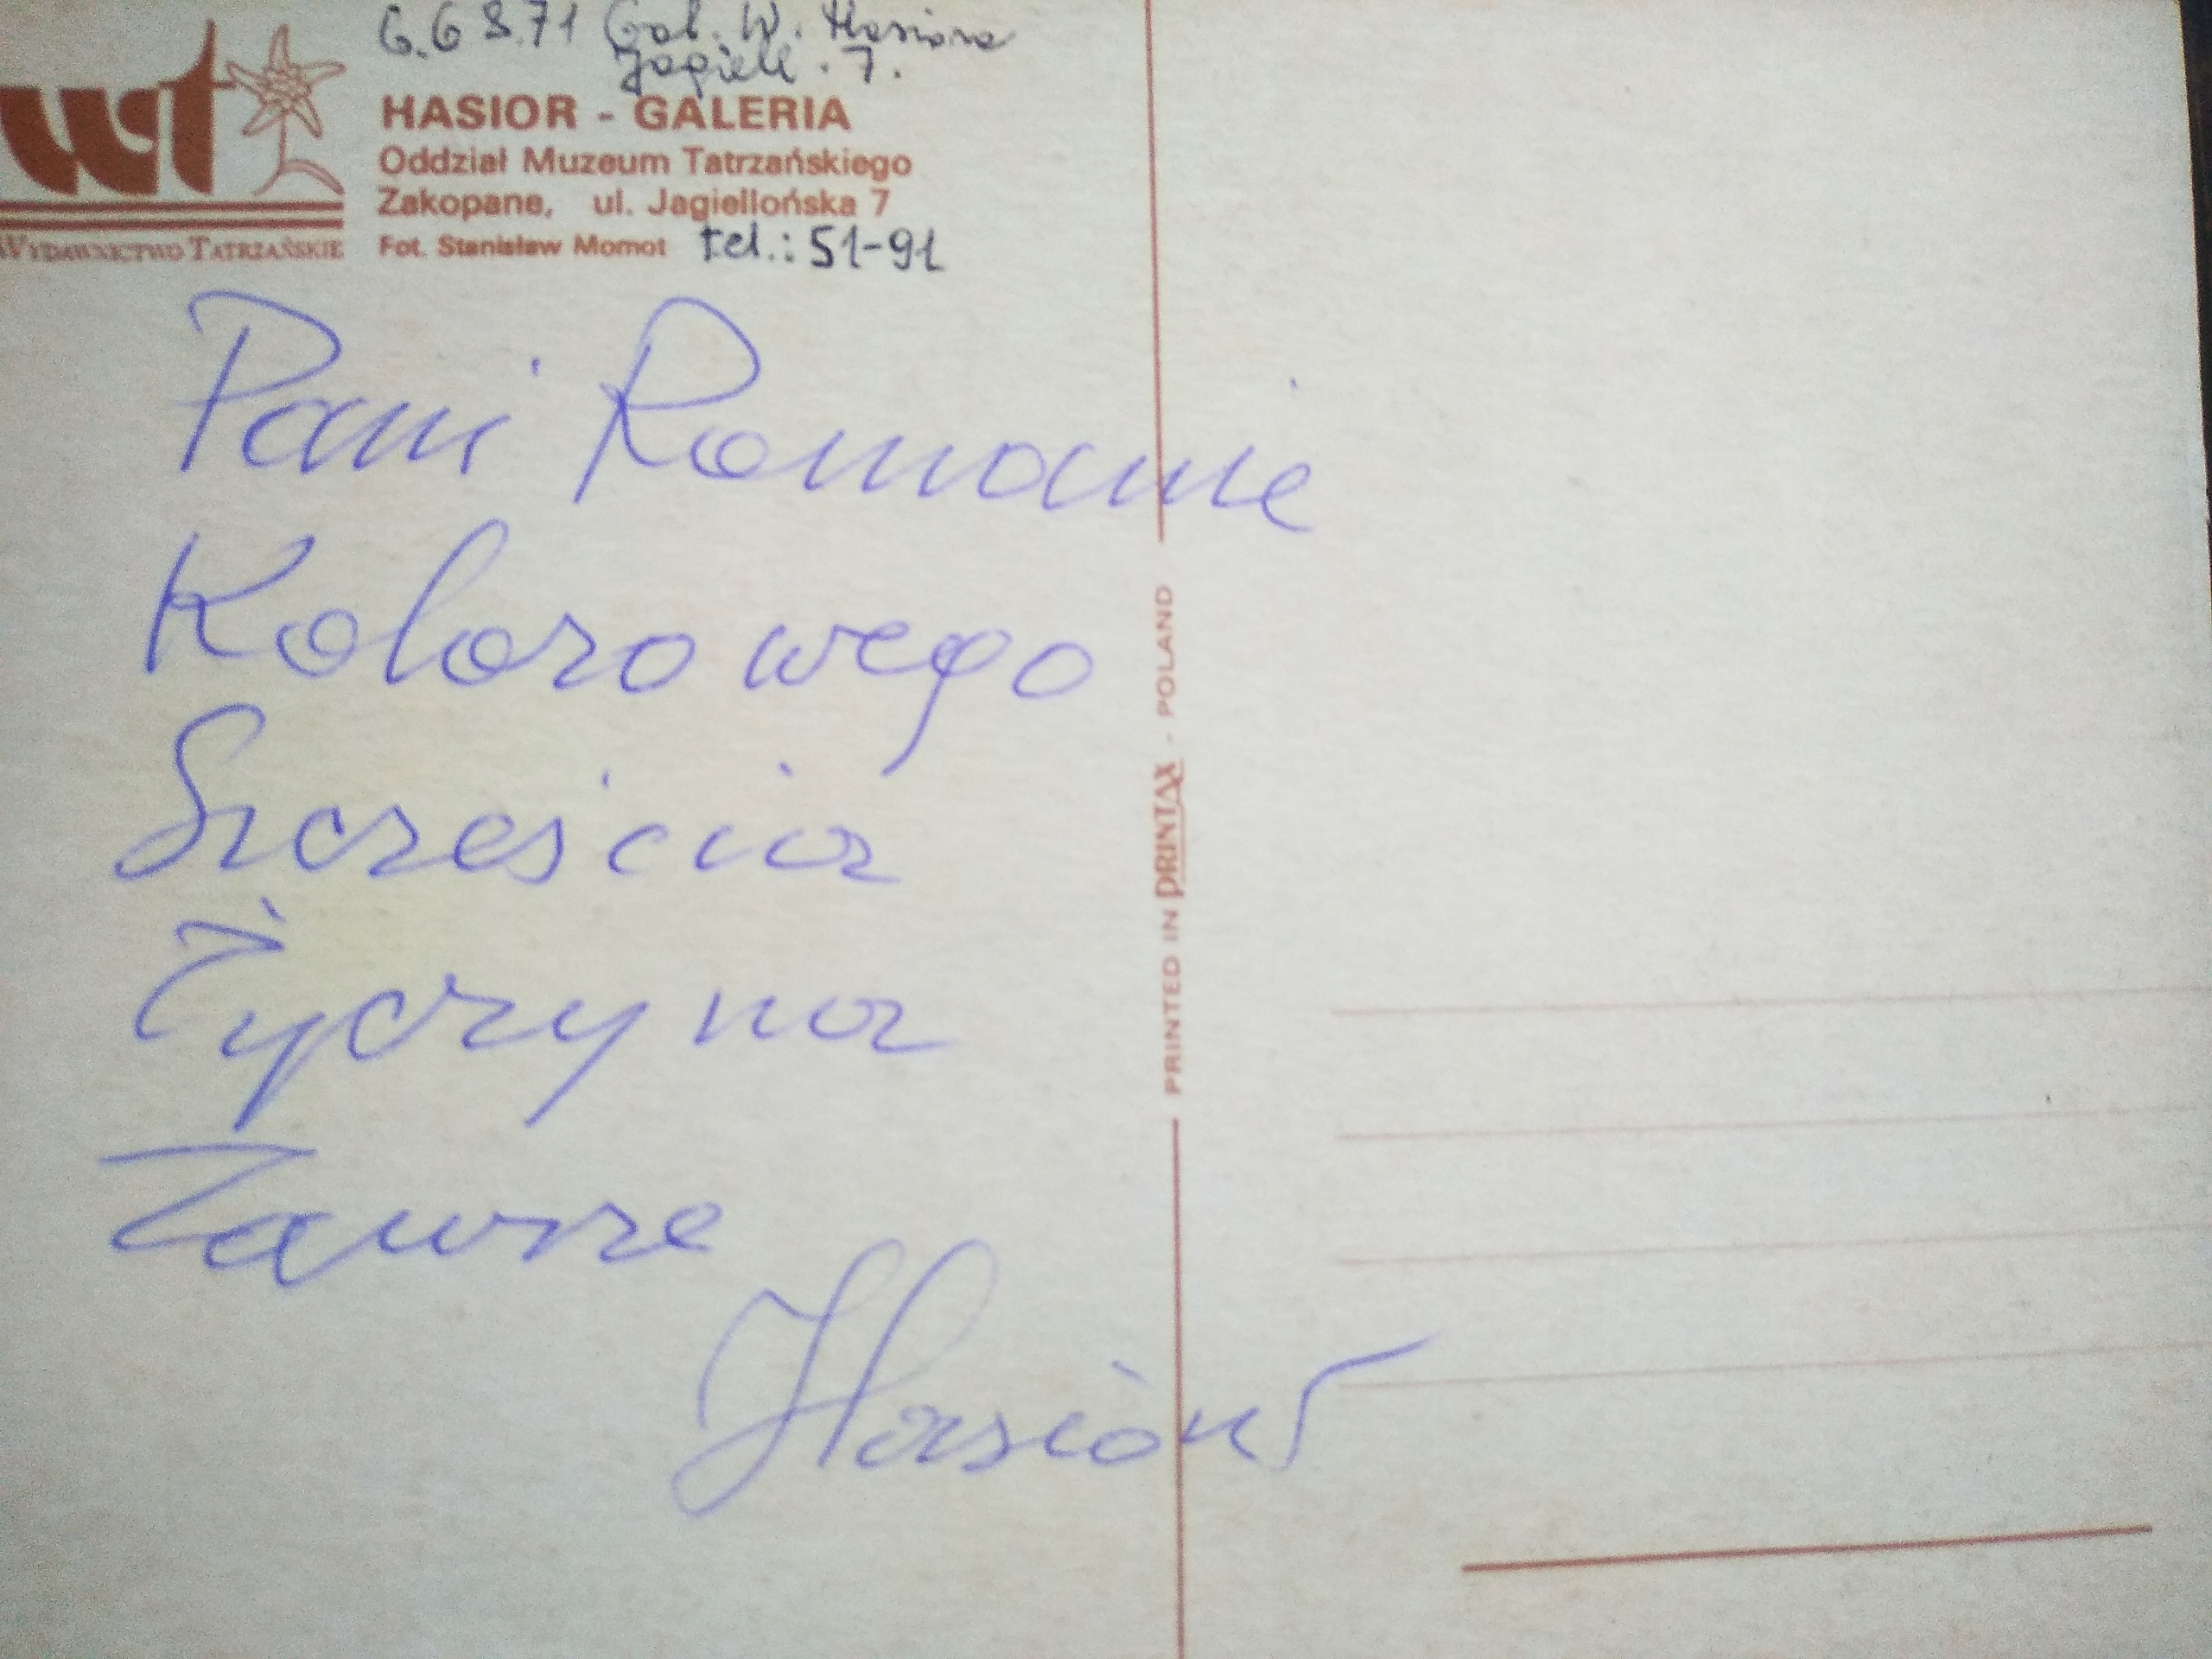 6.68.71 Gal. W. Hasiora
Jagiell. 7.
wt
HASIOR - GALERIA
Oddział Muzeum Tatrzańskiego
Zakopane, ul. Jagiellońska 7
WYDAWNICTWO TATRZAŃSKIE
Fot. Stanisław Momot tel.: 51-91
Pani Romanie
Kolorowego
Szcześcia
Życzy na
Zawsze
Hasior
PRINTED IN PRINTAX - POLAND